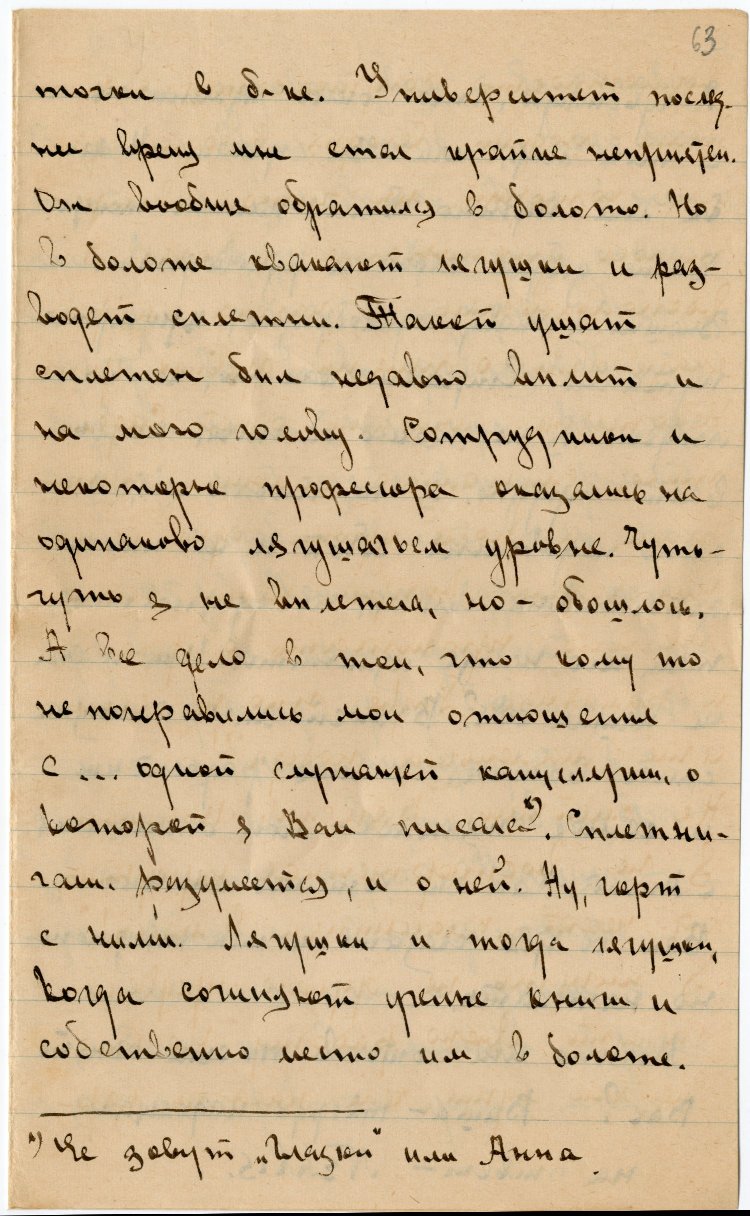 63
точки в б-ке. Университет послед-
нее время мне стал крайне неприятен.
Он вообще обратился в болото. Но
в болоте квакают лягушки и раз-
водят сплетни. Такой ушат
сплетен был недавно вылит и
на мою голову. Сотрудники и
некоторые профессора оказались на
одинаково лягушачьем уровне. Чуть-
чуть я не вылетела, но - обошлось.
А все дело в том, что кому то
не понравились мои отношения
с ... одной служащей канцелярии, о
которой я Вам писала*). Сплетни-
чали, разумеется, и о ней. Ну, чорт
с ними. Лягушки и тогда лягушки,
когда сочиняют ученые книги и
собственно место им в болоте.
*) Ее зовут „Глазки" или Анна.